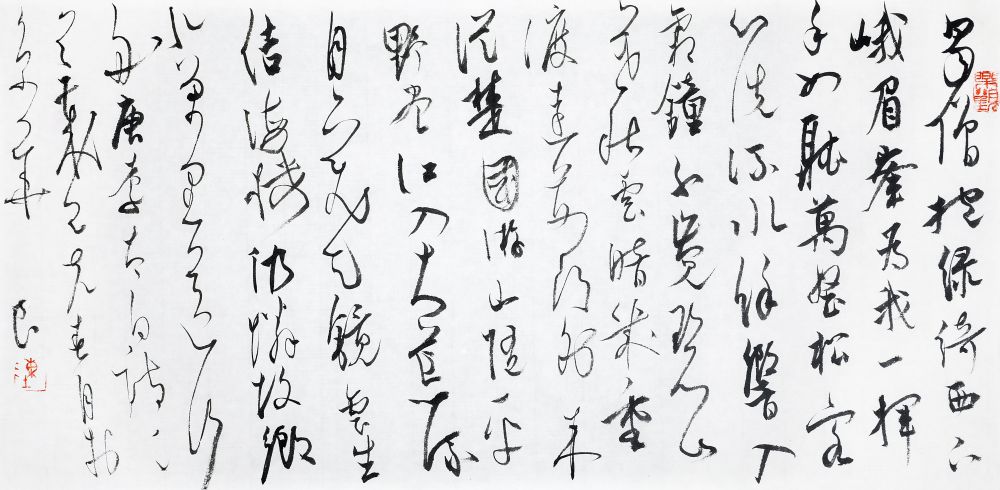 蜀僧抱绿绮西下
峨眉峰为我一挥
手如聽萬壑松客
心洗流水馀響入
霜鐘不觉碧山
暮秋雲暗幾重
渡遠荆門外来
從楚國遊山隨平
野尽江入大荒流
月下飛天鏡雲生
结海楼仍憐故鄉
水萬里送行
舟唐李太白詩二
首 春月於
京